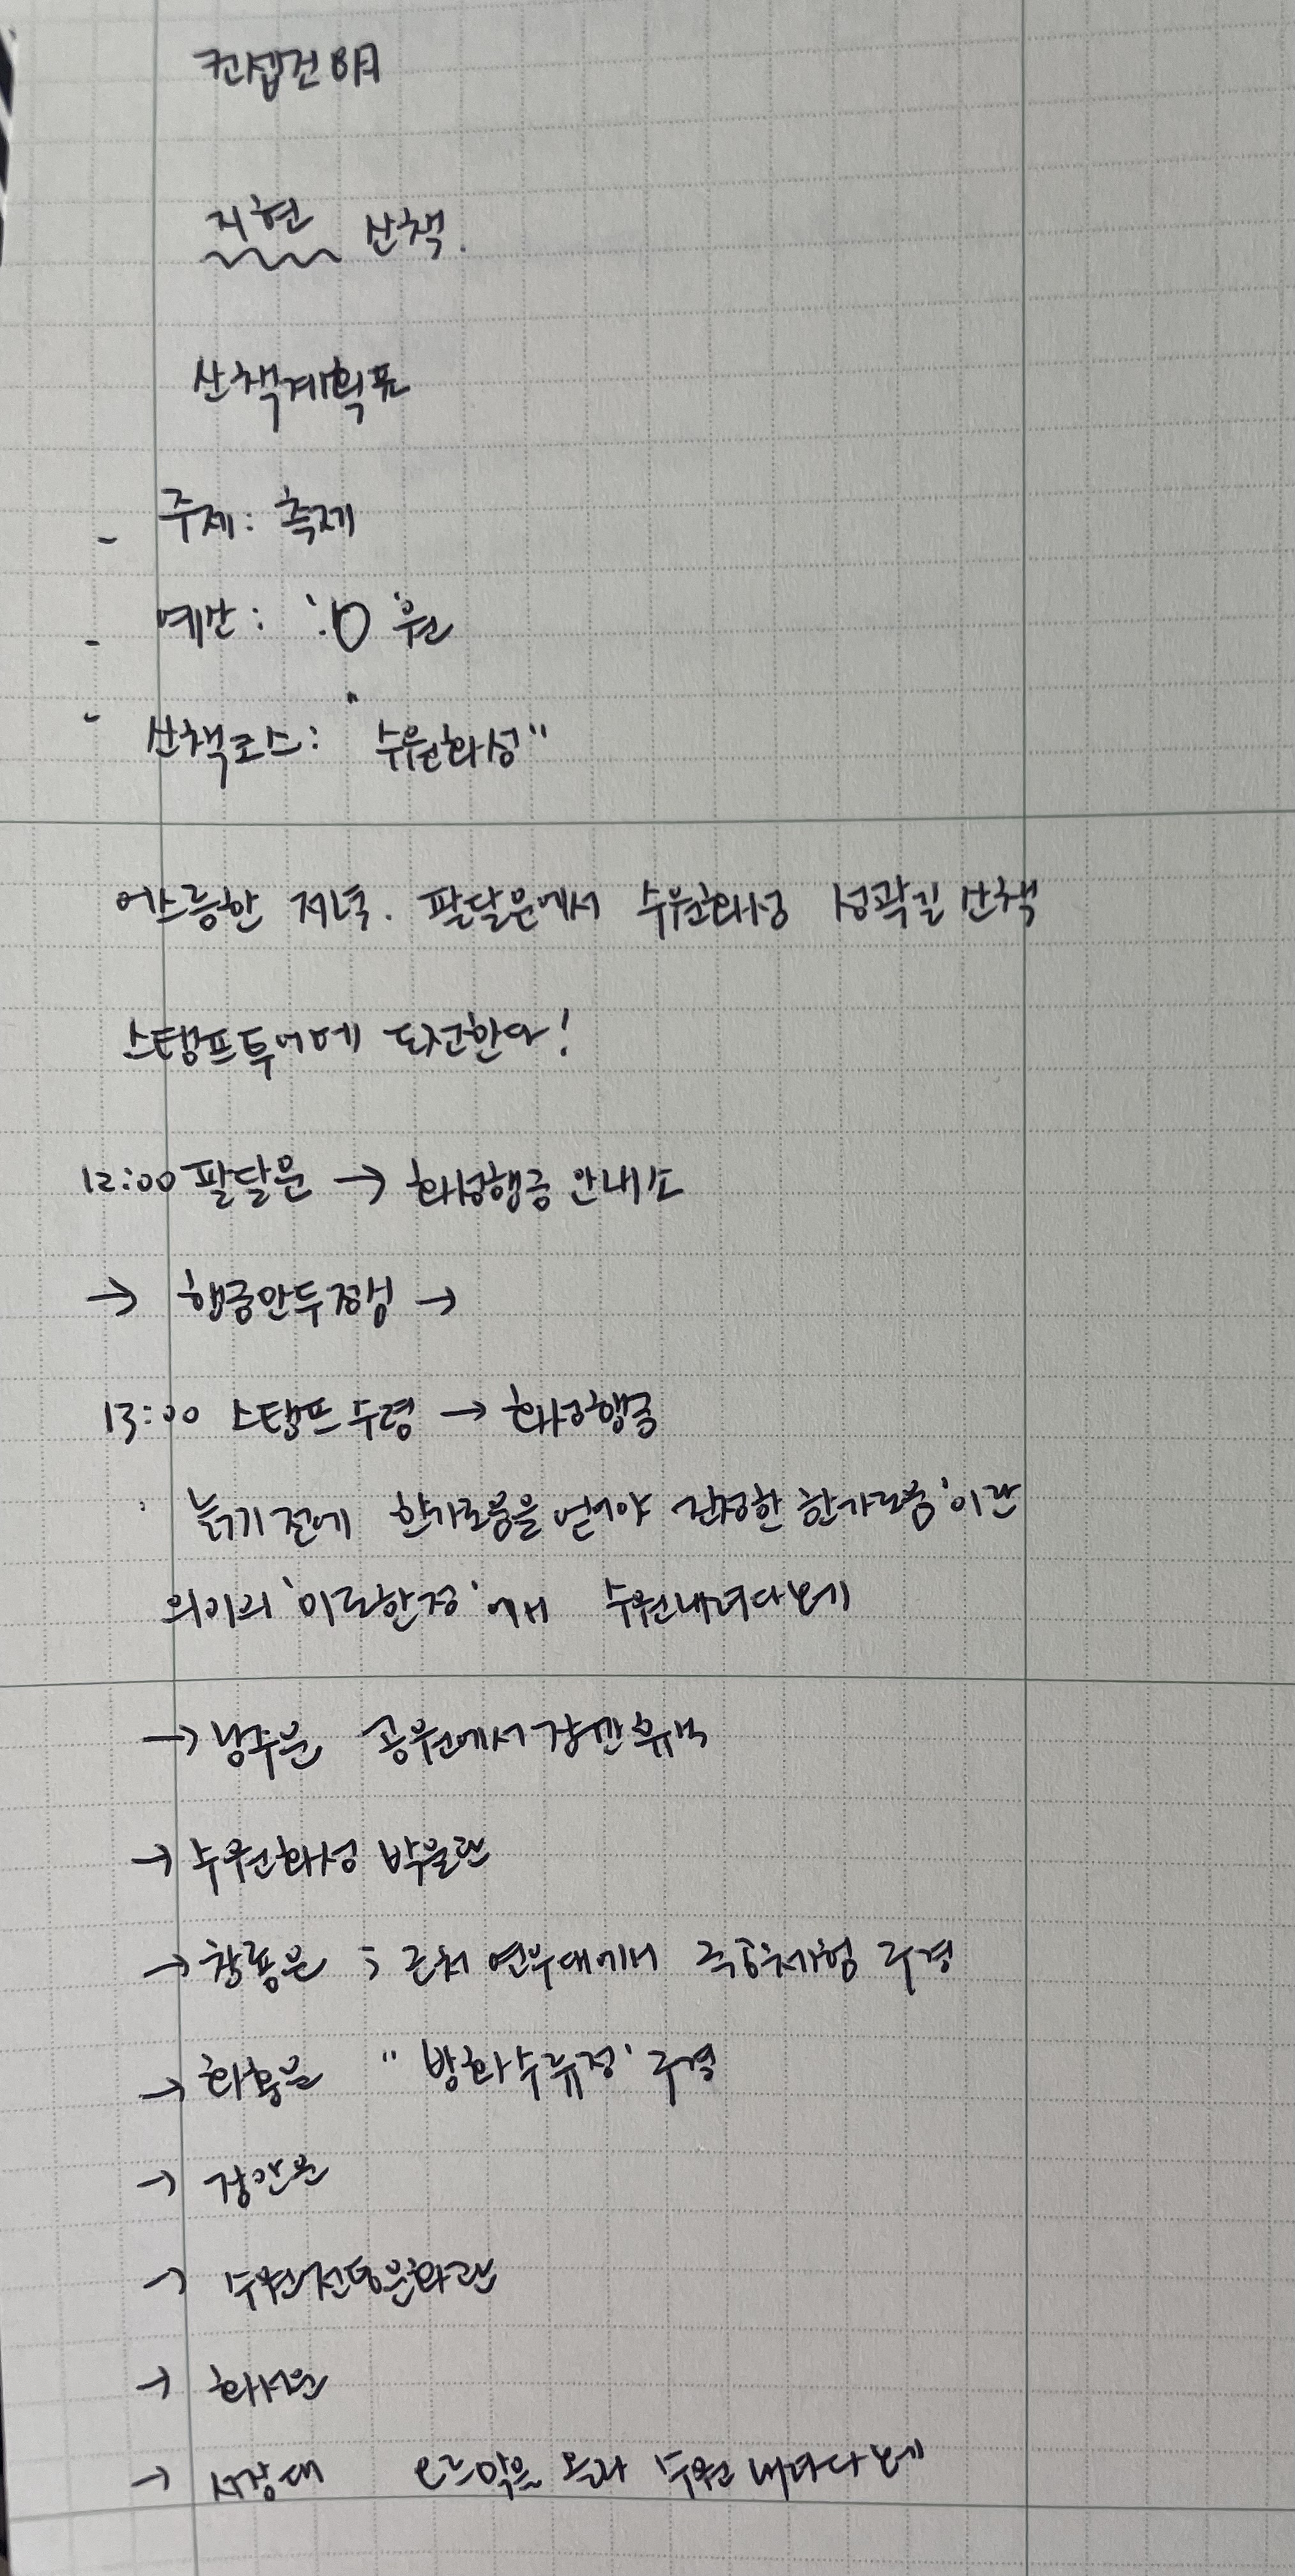 컨셉진 8月
지현 산책.
산책계획표
- 주제: 축제
- 예산: '0'원
- 산책코스: "수원화성"
어스름한 저녁. 팔달문에서 수원화성 성곽길 산책
스탬프투어에 도전한다!
12:00 팔달문 → 화성행궁 안내소
→ 행궁안두정성 →
13:00 스탬프 수령 → 화성행궁
'늙기전에 한가로움을 얻어야 진정한 한가로움'이란
의미의 '미로한정'에서 수원내려다보기
→ 남수문 공원에서 잠깐휴식
→ 수원화성 박물관
→ 창룡문 ; 근처 연무대에서 국궁체험 구경
→ 화홍문 "방화수류정' 구경
→ 장안문
→ 수원전통문화관
→ 화서문
→ 서장대 올라 수원 내려다보기